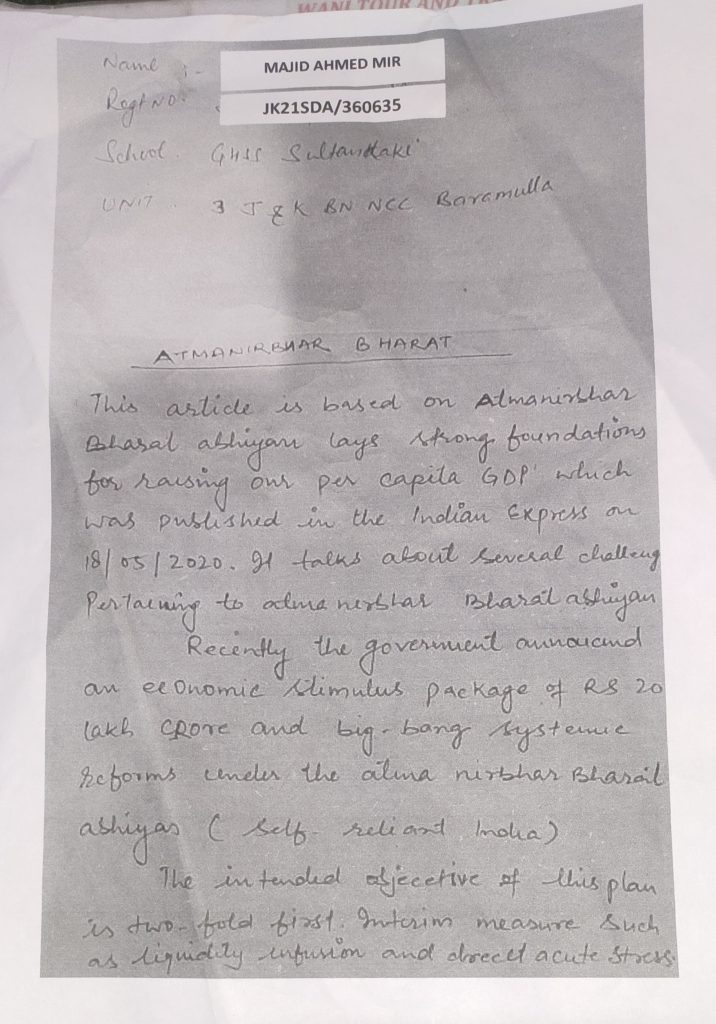 WANI TOUR AND
Name :- MAJID AHMED MIR
Regt No. JK21SDA/360635
School. GHSS Sultandaki
UNIT. 3 J & K BN NCC Baramulla
ATMANIRBHAR BHARAT
This article is based on Atmanirbhar
Bharat abhiyan lays strong foundations
for raising our per capita GDP' which
was published in the Indian Express on
18/05/2020. It talks about several challeng
Pertaining to atma nirbhar Bharat abhiyan
Recently the government announced
an economic stimulus package of RS 20
lakh CRore and big-bang systemic
reforms under the atma nirbhar Bharat
abhiyan ( self- reliant India)
The intended objecetive of this plan
is two-fold first. Interim measure such
as liquidity infusion and direct acute stress